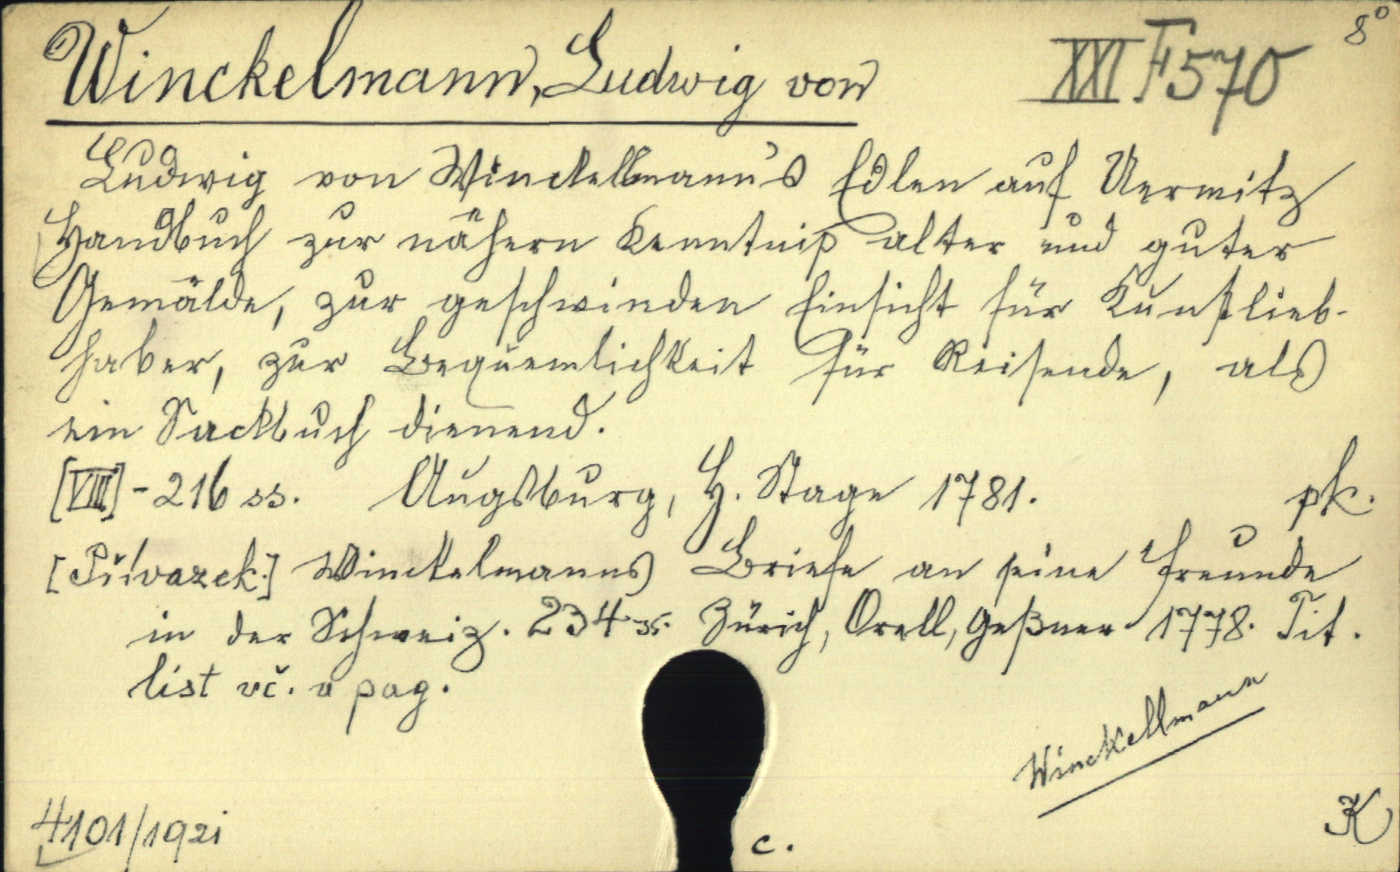 8°
Winckelmann, Ludwig von XXI F 570
Ludwig von Winckellmann's Edlen auf Uermitz
Handbuch zur nähern Kenntniß alter und guter
Gemälde, zur geschwinden Einsicht für Kunstlieb-
haber, zur Bequemlichkeit für Reisende, als
ein Sackbuch dienend.
[VIII]-216 ss. Augsburg, H. Stage 1781. pk.
[Přívazek:] Winckelmanns Briefe an seine Freunde
in der Schweiz. 234 ss. Zürich, Orell, Geßner 1778. Tit.
list vč. v pag.
Winckellmann
4101/1921 c. K